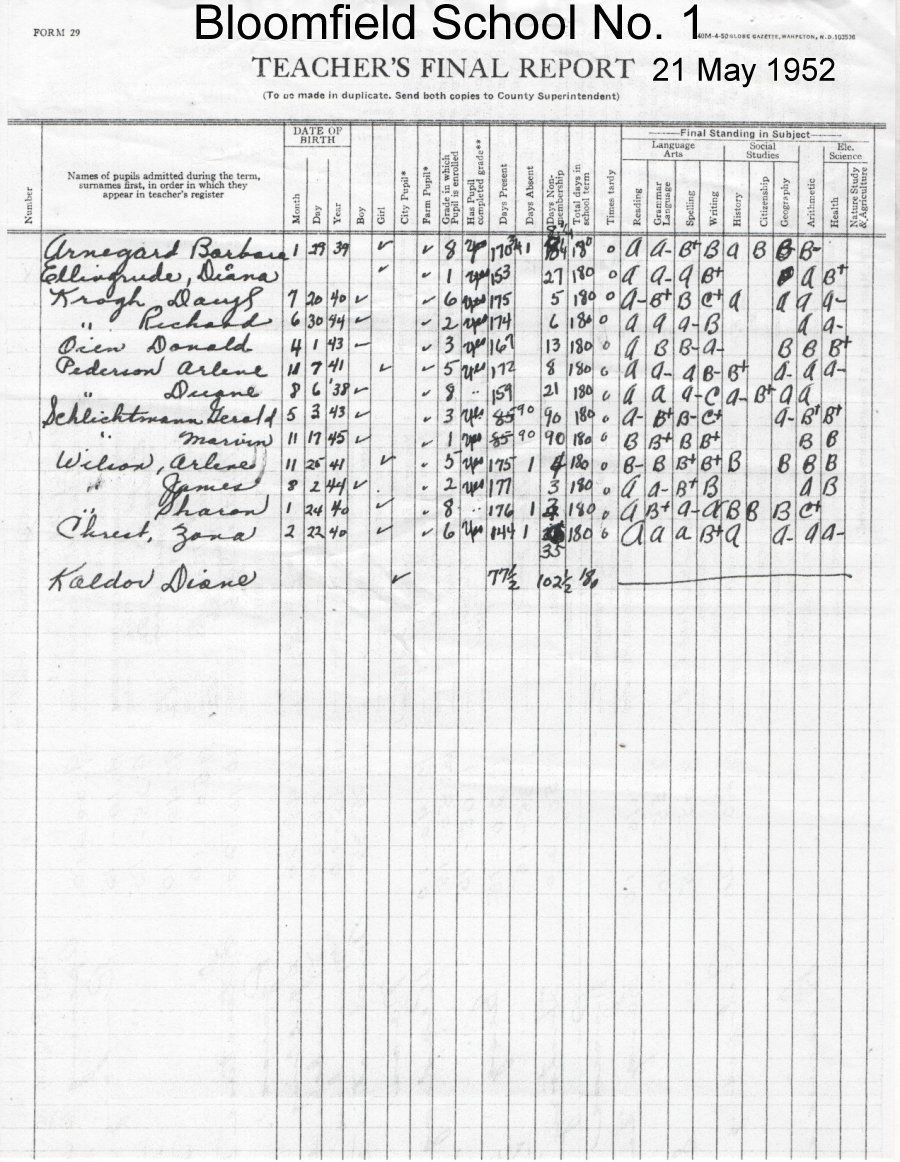 Bloomfield School No. 1
FORM 29
40M-4-50 GLOBE GAZETTE, WAHPETON, N.D. 103536
TEACHER'S FINAL REPORT 21 May 1952
(To be made in duplicate. Send both copies to County Superintendent)
Number
Names of pupils admitted during the term, surnames first, in order in which they appear in teacher's register
DATE OF BIRTH
Month
Day
Year
Boy
Girl
City Pupil*
Farm Pupil*
Grade in which Pupil is enrolled
Has Pupil completed grade**
Days Present
Days Absent
Days Non-membership
Total days in school term
Times tardy
Final Standing in Subject
Language Arts
Social Studies
Ele. Science
Reading
Grammar Language
Spelling
Writing
History
Citizenship
Geography
Arithmetic
Health
Nature Study & Agriculture
Arnegard Barbara 1 29 39 ✓ ✓ 8 yes 170 3/4 1 180 0 A A- B+ B A B B B-
Ellingrude, Diana ✓ ✓ 1 yes 153 27 180 0 A A- A B+ A B+
Krogh Daryl 7 20 40 ✓ ✓ 6 yes 175 5 180 0 A- B+ B C+ A A A A-
" Richard 6 30 44 ✓ ✓ 2 yes 174 6 180 0 A A A- B A A-
Oien Donald 4 1 43 ✓ 3 yes 167 13 180 0 A B B- A- B B B+
Pederson Arlene 11 7 41 ✓ ✓ 5 yes 172 8 180 0 A A- A B- B+ A- A A-
" Duane 8 6 '38 ✓ ✓ 8 " 159 21 180 0 A A A- C A- B+ A A
Schlichtmann Gerald 5 3 43 ✓ ✓ 3 yes 85 90 90 180 0 A- B+ B- C+ A- B+ B+
" Marvin 11 17 45 ✓ ✓ 1 yes 85 90 90 180 0 B B+ B B+ B B
Wilson, Arlene 11 25 41 ✓ ✓ 5 yes 175 1 4 180 0 B- B B+ B+ B B B B
" James 8 2 44 ✓ ✓ 2 yes 177 3 180 0 A A- B+ B A B
" Sharon 1 24 40 ✓ ✓ 8 " 176 1 3 180 0 A B+ A- A B B B C+
Chrest, Zona 2 22 40 ✓ ✓ 6 yes 144 1 35 180 0 A A A B+ A A- A A-
Kaldor Diane ✓ 77 1/2 102 1/2 180